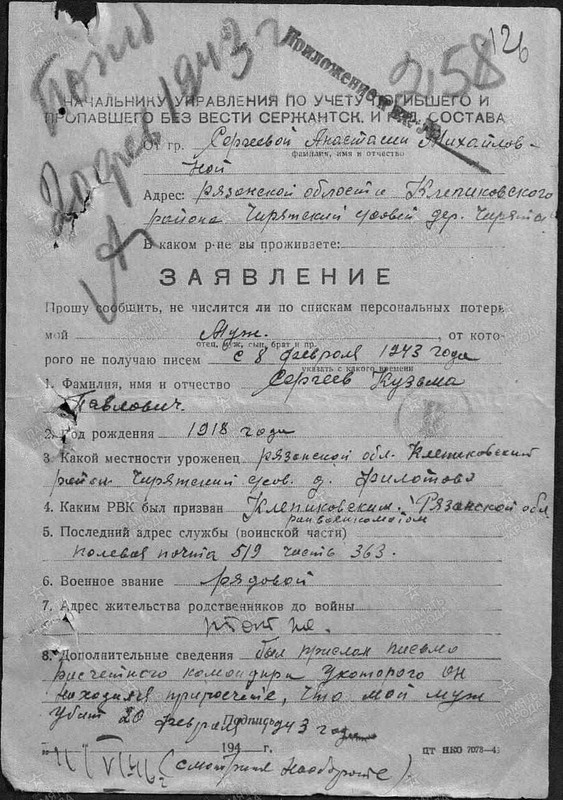 126
258
Погиб
20 фев 1943 г
Приложение к вх. №
НАЧАЛЬНИКУ УПРАВЛЕНИЯ ПО УЧЕТУ ПОГИБШЕГО И
ПРОПАВШЕГО БЕЗ ВЕСТИ СЕРЖАНТСК. И РЯД. СОСТАВА
От гр. Сергеевой Анастасии Михайлов-
фамилия, имя и отчество
ной
Адрес: рязанской области Клепиковского
района Чирятский совет дер. Чирята
В каком р-не вы проживаете:
ЗАЯВЛЕНИЕ
Прошу сообщить, не числится ли по спискам персональных потерь
мой Муж. , от кото-
отец, муж, сын, брат и пр.
рого не получаю писем с 8 февраля 1943 года
указать с какого времени
1. Фамилия, имя и отчество Сергеев Кузьма
Павлович.
2. Год рождения 1918 года
3. Какой местности уроженец рязанской обл. Клепиковский
район Чирятский сов. д. Филатово
4. Каким РВК был призван Клепиковским Рязанской обл
райвоенкоматом
5. Последний адрес службы (воинской части)
полевая почта 519 часть 363.
6. Военное звание рядовой
7. Адрес жительства родственников до войны
тот же.
8. Дополнительные сведения был прислан письмо
командира у которого он
находился, что мой муж
убит 20 февраля 1943 года
Подпись
194 г. ЦТ НКО 7078—4
(смотри на обороте).